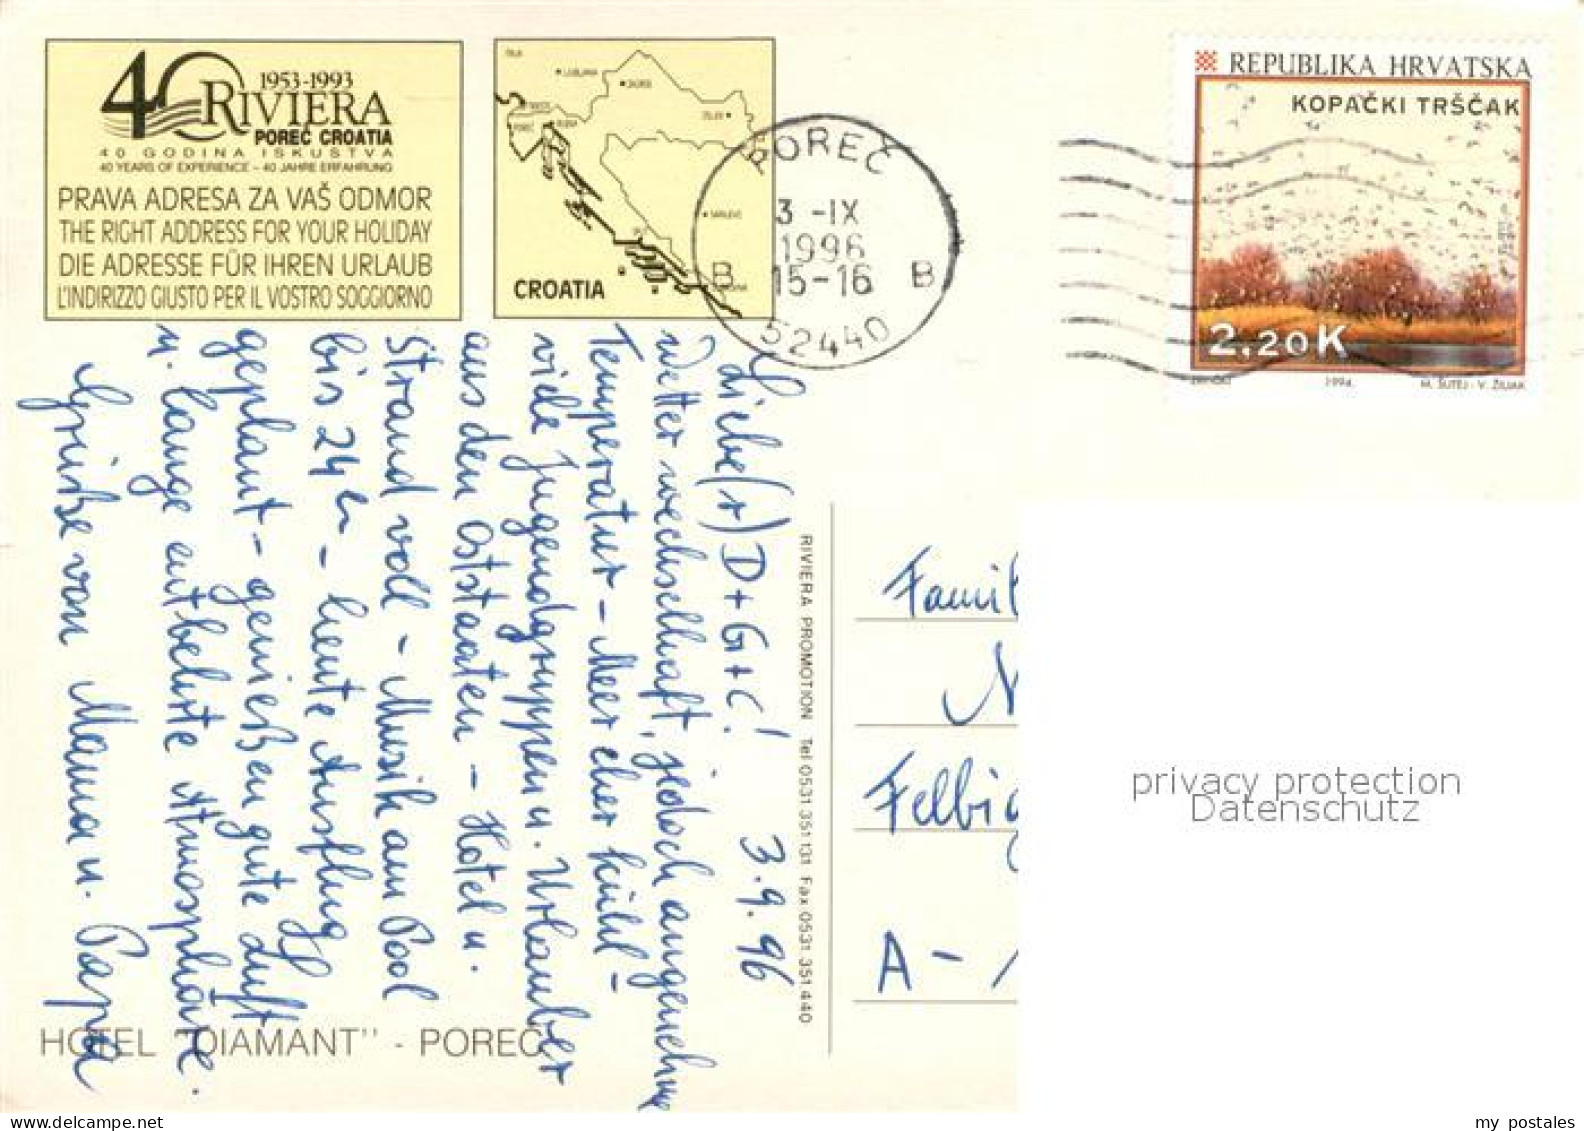 40 RIVIERA
1953-1993
POREČ CROATIA
40 GODINA ISKUSTVA
40 YEARS OF EXPERIENCE - 40 JAHRE ERFAHRUNG
PRAVA ADRESA ZA VAŠ ODMOR
THE RIGHT ADDRESS FOR YOUR HOLIDAY
DIE ADRESSE FÜR IHREN URLAUB
L'INDIRIZZO GIUSTO PER IL VOSTRO SOGGIORNO
CROATIA
POREČ
3 -IX
1996
B 15-16 B
52440
REPUBLIKA HRVATSKA
KOPAČKI TRŠČAK
2.20 K
1994. M. ŠUTEJ - V. ŽILJAK
3.9.96
Liebe(r) D+G+C!
Wetter wechselhaft, jedoch angenehme
Temperatur - Meer eher kühl -
viele Jugendgruppen u. Urlauber
aus den Oststaaten - Hotel u.
Strand voll - Musik am Pool
bis 24h - heute Ausflug
geplant - genießen gute Luft
u. lange entbehrte Atmosphäre.
Grüße von Mama u. Papa
RIVIERA PROMOTION Tel 0531 351 131 Fax 0531 351 440
Famil
N
Felbig
A -
HOTEL "DIAMANT" - POREČ
privacy protection
Datenschutz
my postales